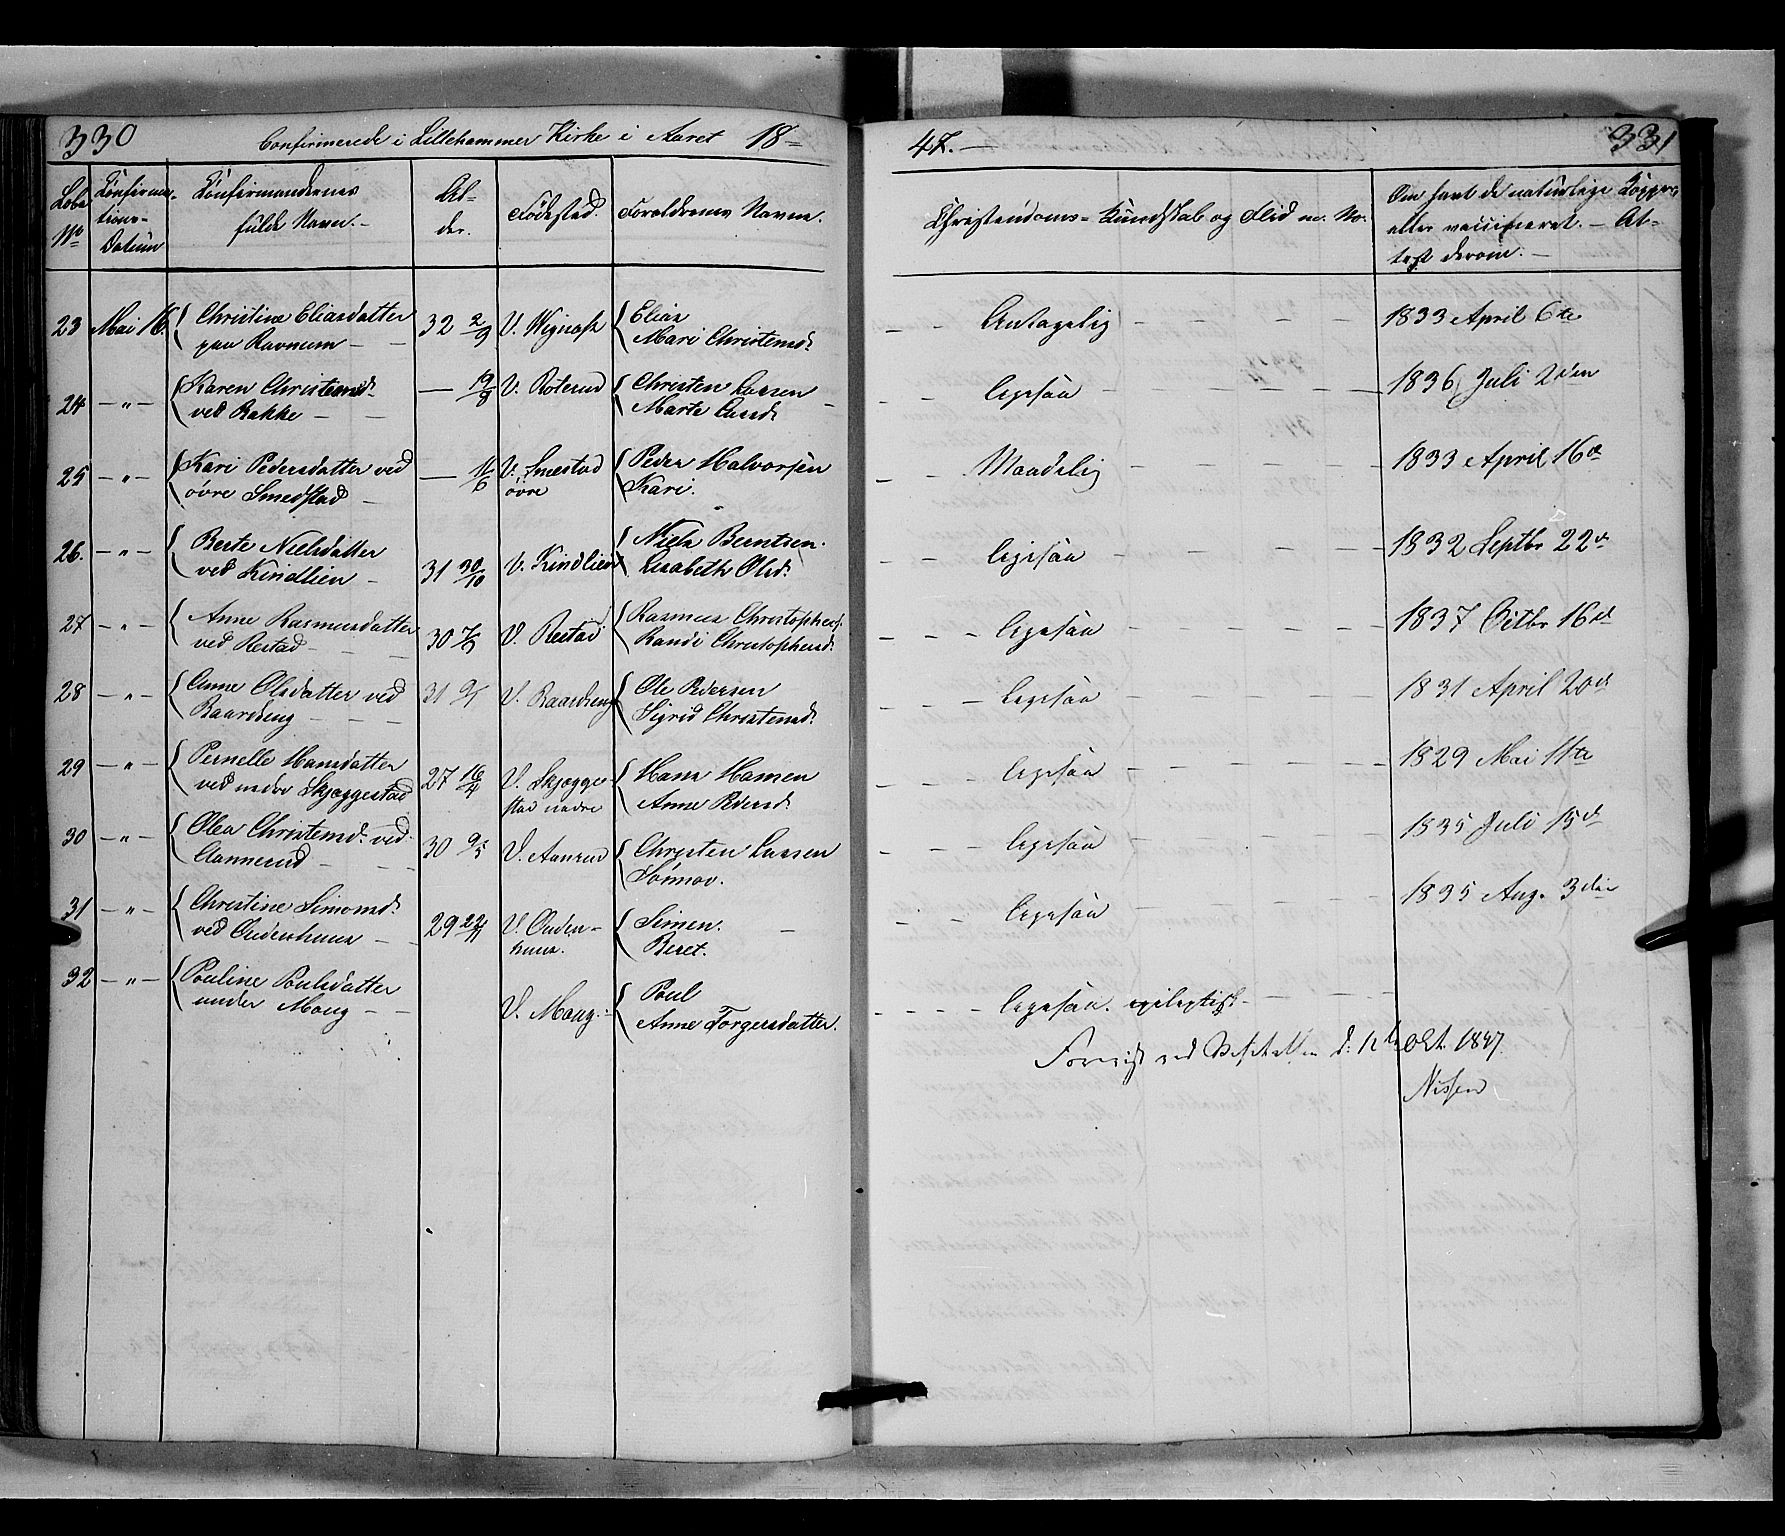 330 Confirmerede i Lillehammer Kirke i Aaret 18=
47.— 331
Løbe No
Confirma-
tions-
Datum
Confirmandernes
fulde Navn.
Al-
der.
Fødested.
Forældrenes Navne.
Christendoms-Kundskab og Flid m. M.
Om havt de naturlige Kopper
eller vaccineret. — At=
test derom.
23 Mai 16 Christine Eliasdatter 32 2/9 V. Wignæs Elias Antagelig 1833 April 6te
paa Ravnum Mari Christensd.
24 — " — Karen Christensd. — 19/8 V. Roterud Christen Larsen ligesaa 1836 Juli 2den
ved Bakke Marte Larsd.
25 — " — Kari Pedersdatter ved — 16/6 V. Smestad Peder Halvorsen Maadelig 1833 April 16de
øvre Smedstad øvre Kari.
26. — " — Berte Nielsdatter 31 30/10 V. Kindlien Niels Berntsen. ligesaa 1832 Septbr 22de
ved Kindlien Lisabeth Olsd.
27 — " — Anne Rasmusdatter 30 V. Restad Rasmus Christophers. ligesaa 1837 Octbr 16de
ved Restad Randi Christophersd.
28 — " — Anne Olsdatter ved 31 V. Baardseng Ole Pedersen ligesaa 1831 April 20de
Baardseng Sigrid Christensd.
29 — " — Pernelle Hansdatter 27 16/4 V. Skjøgge- Hans Hansen ligesaa 1829 Mai 11te
ved nedre Skjøggestad stad nedre Anne Pedersd.
30 — " — Olea Christensd. ved 30 9/5 V. Aanrud Christen Larsen ligesaa 1835 Juli 15de
Aannerud Sønnov.
31 — " — Christine Simonsd. 29 22/11 V. Onden- Simen. ligesaa 1835 Aug. 3die
ved Ondenhuus huus. Beret.
32 — " — Pouline Poulsdatter V. Moug. Poul ligesaa. epileptisk
under Moug Anne Torgersdatter.
Foreviist ved Visitatsen d: 12te Okt. 1847.
Nissen